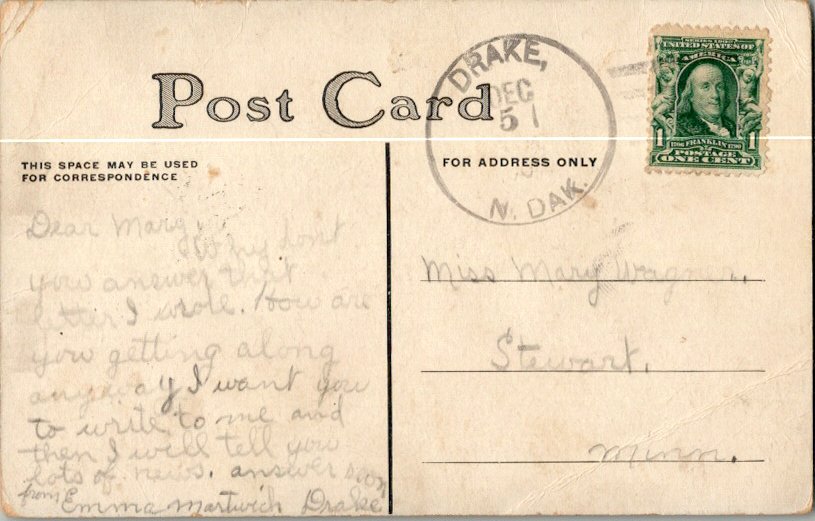 Post Card
THIS SPACE MAY BE USED
FOR CORRESPONDENCE
FOR ADDRESS ONLY
DRAKE,
DEC
5
N. DAK.
SERIES 1902
UNITED STATES OF
AMERICA
1 1706 FRANKLIN 1790 1
POSTAGE
ONE CENT
Dear Mary
Why dont
you answer that
letter I wrote. How are
you getting along
anyway I want you
to write to me and
then I will tell you
lots of news. answer soon
from Emma Martwich Drake
Miss Mary Wagner,
Stewart,
Minn.